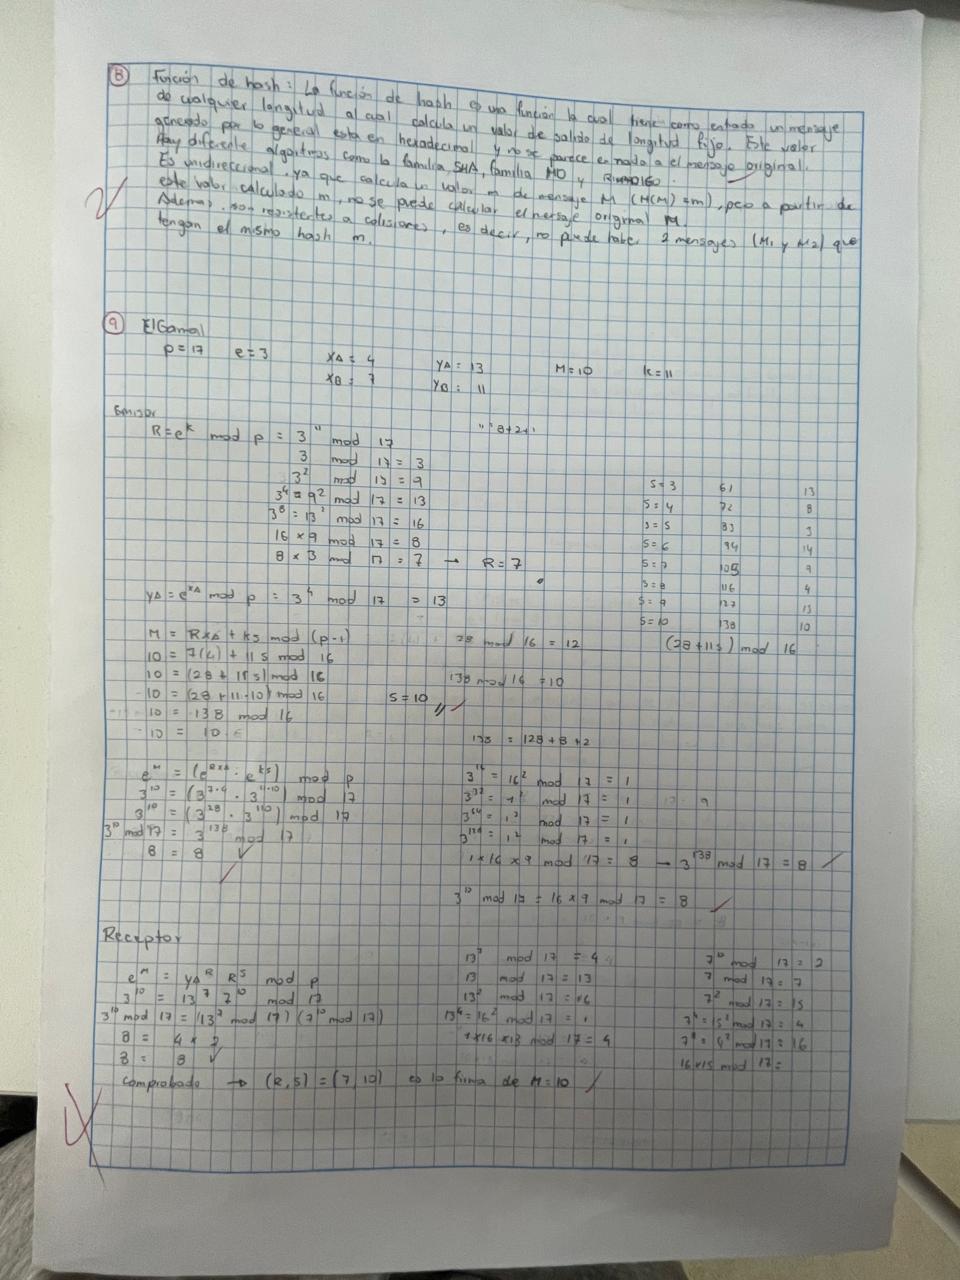 8 Función de hash: La función de hash es una función la cual tiene como entrada un mensaje
de cualquier longitud al cual calcula un valor de salida de longitud fijo. Este valor
generado por lo general esta en hexadecimal y no se parece en nada a el mensaje original.
Hay diferente algoritmos como la familia SHA, familia MD y
Es unidireccional, ya que calcula un valor m de mensaje M (H(M) = m), pero a partir de
este valor calculado m, no se puede calcular el mensaje original M.
Ademas, son resistentes a colisiones, es decir, no puede haber 2 mensajes (M1 y M2) que
tengan el mismo hash m.
9 ElGamal
p = 17 e = 3 XA = 4 YA = 13 M = 10 k = 11
XB = 7 YB = 11
Emisor
R = e^k mod p = 3^11 mod 17 8+2+1
3 mod 17 = 3
3^2 mod 17 = 9
3^4 = 9^2 mod 17 = 13
3^8 = 13^2 mod 17 = 16
16 x 9 mod 17 = 8
8 x 3 mod 17 = 7 → R = 7
S = 3 61 13
S = 4 72 8
S = 5 83 3
S = 6 94 14
S = 7 105 9
S = 8 116 4
S = 9 127 15
S = 10 138 10
YA = e^XA mod p = 3^4 mod 17 = 13
M = RXA + kS mod (p-1) 28 mod 16 = 12 (28 + 11S) mod 16
10 = 7(4) + 11S mod 16
10 = (28 + 11S) mod 16 138 mod 16 = 10
10 = (28 + 11·10) mod 16 S = 10
10 = 138 mod 16
10 = 10
138 = 128 + 8 + 2
e^M = (e^RXA · e^kS) mod p
3^10 = (3^7·4 · 3^11·10) mod 17
3^10 = (3^28 · 3^110) mod 17
3^10 mod 17 = 3^138 mod 17
8 = 8 ✓
3^16 = 16^2 mod 17 = 1
3^32 = 1^2 mod 17 = 1
3^64 = 1^2 mod 17 = 1
3^128 = 1^2 mod 17 = 1
1 x 16 x 9 mod 17 = 8 → 3^138 mod 17 = 8
3^10 mod 17 = 16 x 9 mod 17 = 8
Receptor
e^M = YA^R R^S mod p
3^10 = 13^7 7^10 mod 17
3^10 mod 17 = (13^7 mod 17) (7^10 mod 17)
8 = 4 x 2
8 = 8 ✓
13^7 mod 17 = 4
13 mod 17 = 13
13^2 mod 17 = 16
13^4 = 16^2 mod 17 = 1
1 x 16 x 13 mod 17 = 4
7^10 mod 17 = 2
7 mod 17 = 7
7^2 mod 17 = 15
7^4 = 15^2 mod 17 = 4
7^8 = 4^2 mod 17 = 16
16 x 15 mod 17 =
Comprobado → (R, S) = (7, 10) es la firma de M = 10